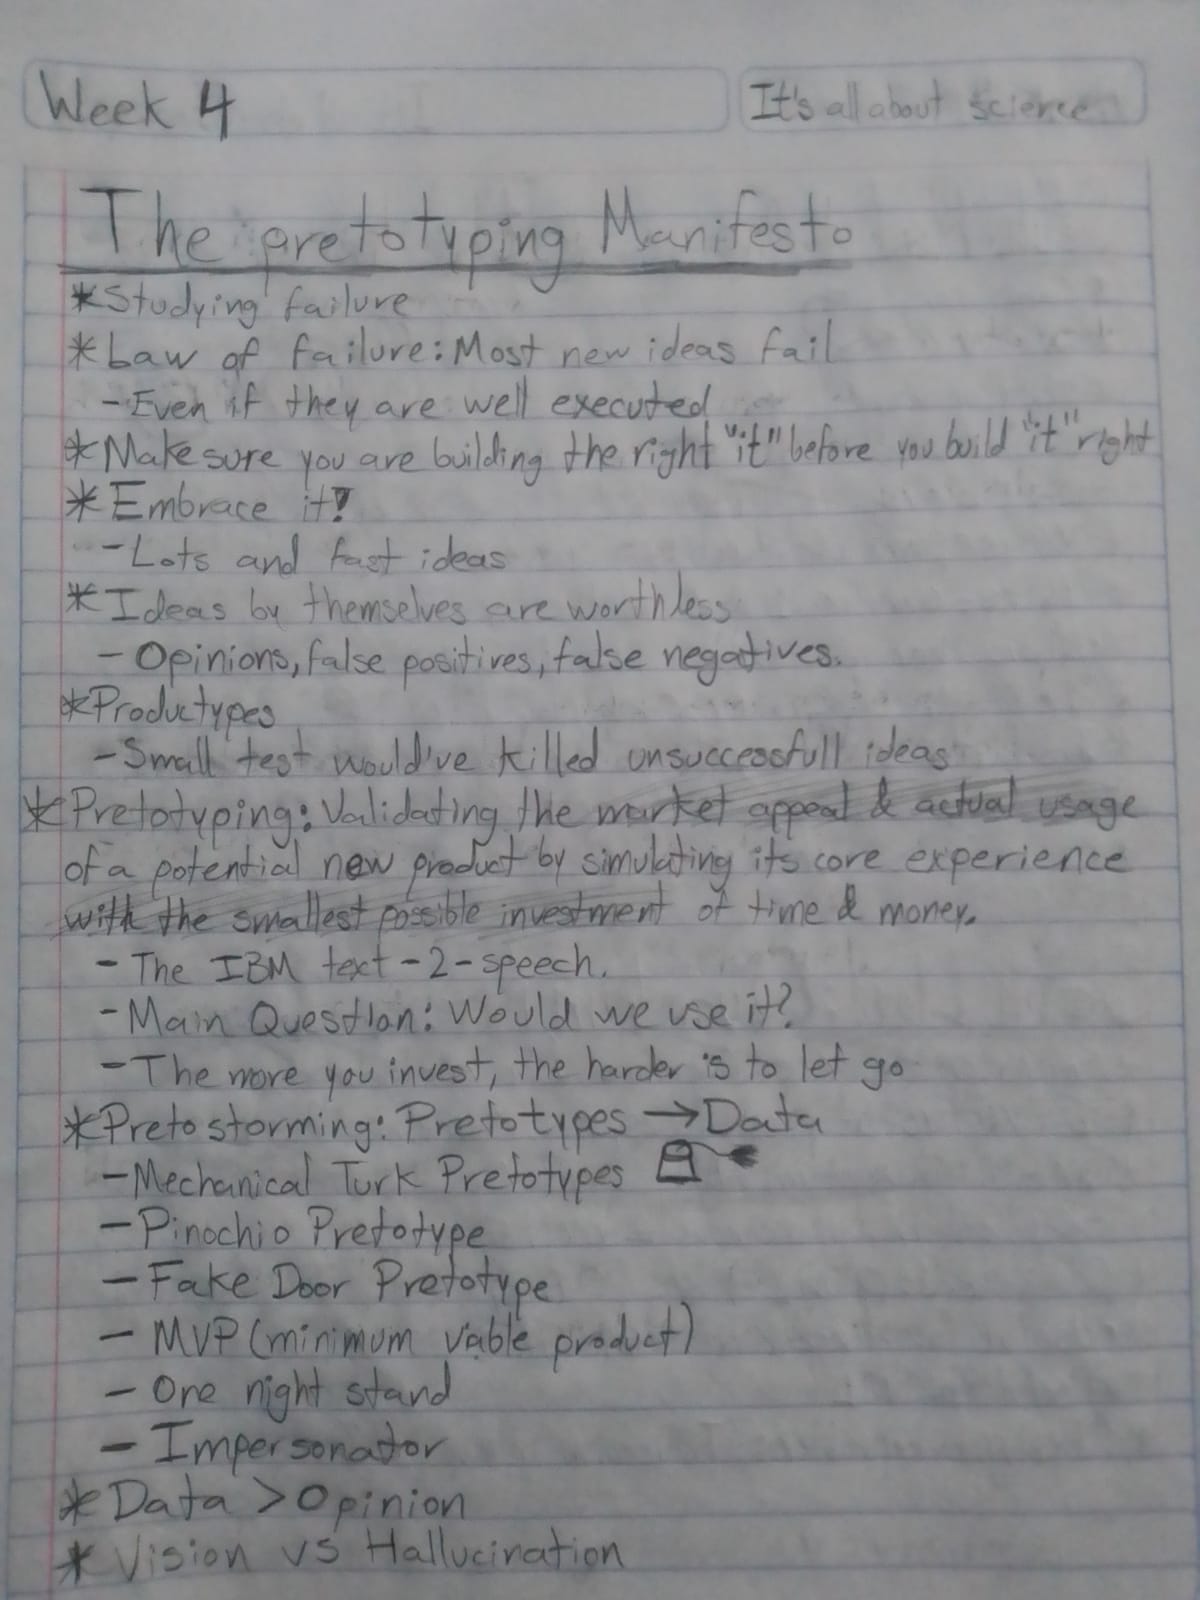 Week 4
It's all about science
The pretotyping Manifesto
*Studying failure
*Law of failure: Most new ideas fail
-Even if they are well executed
*Make sure you are building the right "it" before you build "it" right
*Embrace it!
-Lots and fast ideas
*Ideas by themselves are worthless
- Opinions, false positives, false negatives.
*Productypes
-Small test would've killed unsuccessfull ideas
*Pretotyping: Validating the market appeal & actual usage
of a potential new product by simulating its core experience
with the smallest possible investment of time & money.
- The IBM text-2-speech.
-Main Question: Would we use it?
-The more you invest, the harder is to let go
*Pretostorming: Pretotypes →Data
-Mechanical Turk Pretotypes
-Pinochio Pretotype
-Fake Door Pretotype
- MVP (minimum viable product)
- One night stand
- Impersonator
*Data >Opinion
*Vision vs Hallucination